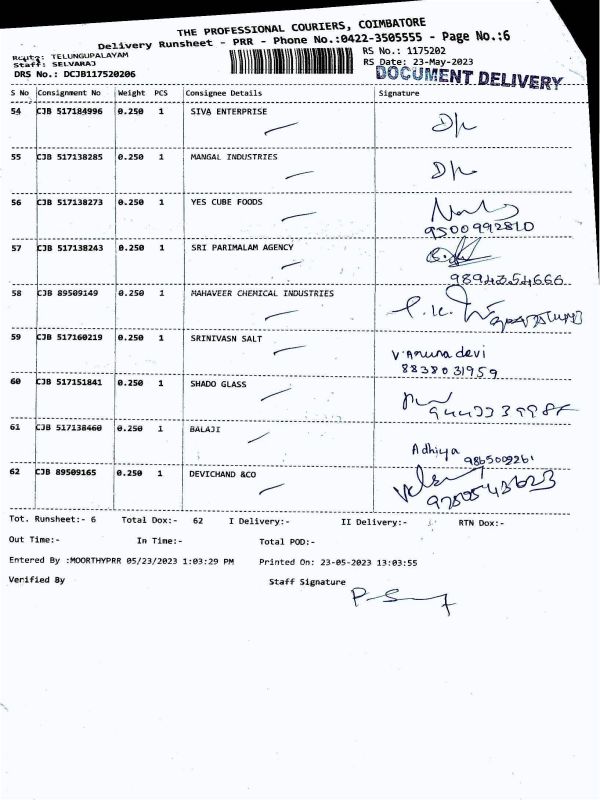 THE PROFESSIONAL COURIERS, COIMBATORE
Delivery Runsheet - PRR - Phone No.:0422-3505555 - Page No.:6
Route: TELUNGUPALAYAM
Staff: SELVARAJ
RS No.: 1175202
RS Date: 23-May-2023
DRS No.: DCJB117520206
DOCUMENT DELIVERY
S No Consignment No Weight PCS Consignee Details Signature
54 CJB 517184996 0.250 1 SIVA ENTERPRISE
55 CJB 517138285 0.250 1 MANGAL INDUSTRIES
56 CJB 517138273 0.250 1 YES CUBE FOODS
9500992810
57 CJB 517138243 0.250 1 SRI PARIMALAM AGENCY
9894354666
58 CJB 89509149 0.250 1 MAHAVEER CHEMICAL INDUSTRIES
59 CJB 517160219 0.250 1 SRINIVASN SALT
V.Aruna devi
8838031959
60 CJB 517151841 0.250 1 SHADO GLASS
61 CJB 517138460 0.250 1 BALAJI
Adhiya
9865009261
62 CJB 89509165 0.250 1 DEVICHAND &CO
9750543623
Tot. Runsheet:- 6 Total Dox:- 62 I Delivery:- II Delivery:- RTN Dox:-
Out Time:- In Time:- Total POD:-
Entered By :MOORTHYPRR 05/23/2023 1:03:29 PM Printed On: 23-05-2023 13:03:55
Verified By Staff Signature